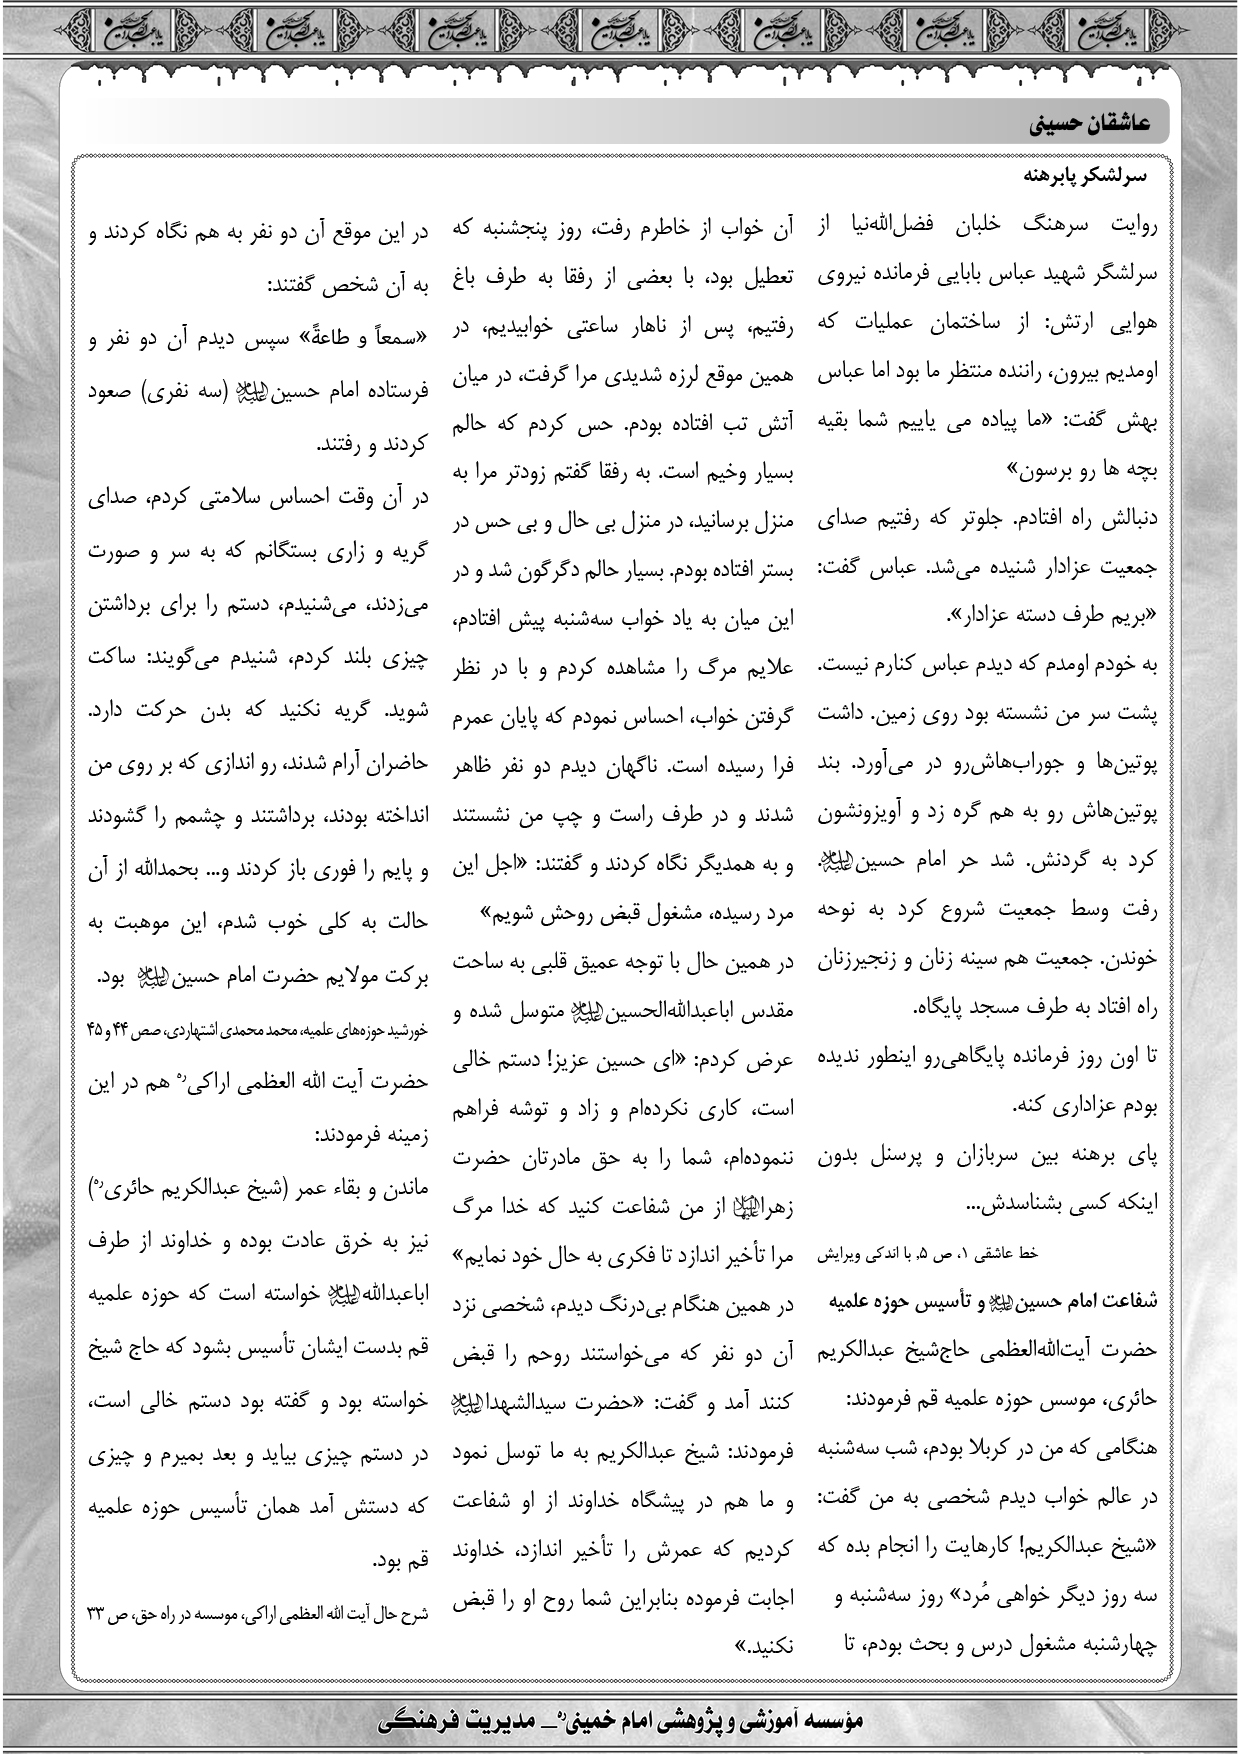 عاشقان حسینی
سرلشکر پابرهنه
روایت سرهنگ خلبان فضل‌الله‌نیا از
سرلشگر شهید عباس بابایی فرمانده نیروی
هوایی ارتش: از ساختمان عملیات که
اومدیم بیرون، راننده منتظر ما بود اما عباس
بهش گفت: «ما پیاده می یاییم شما بقیه
بچه ها رو برسون»
دنبالش راه افتادم. جلوتر که رفتیم صدای
جمعیت عزادار شنیده می‌شد. عباس گفت:
«بریم طرف دسته عزادار».
به خودم اومدم که دیدم عباس کنارم نیست.
پشت سر من نشسته بود روی زمین. داشت
پوتین‌ها و جوراب‌هاش‌رو در می‌آورد. بند
پوتین‌هاش رو به هم گره زد و آویزونشون
کرد به گردنش. شد حر امام حسین علیه‌السلام.
رفت وسط جمعیت شروع کرد به نوحه
خوندن. جمعیت هم سینه زنان و زنجیرزنان
راه افتاد به طرف مسجد پایگاه.
تا اون روز فرمانده پایگاهی‌رو اینطور ندیده
بودم عزاداری کنه.
پای برهنه بین سربازان و پرسنل بدون
اینکه کسی بشناسدش...
خط عاشقی ۱، ص ۵, با اندکی ویرایش
شفاعت امام حسین علیه‌السلام و تأسیس حوزه علمیه
حضرت آیت‌الله‌العظمی حاج‌شیخ عبدالکریم
حائری، موسس حوزه علمیه قم فرمودند:
هنگامی که من در کربلا بودم، شب سه‌شنبه
در عالم خواب دیدم شخصی به من گفت:
«شیخ عبدالکریم! کارهایت را انجام بده که
سه روز دیگر خواهی مُرد» روز سه‌شنبه و
چهارشنبه مشغول درس و بحث بودم، تا
آن خواب از خاطرم رفت، روز پنجشنبه که
تعطیل بود، با بعضی از رفقا به طرف باغ
رفتیم، پس از ناهار ساعتی خوابیدیم، در
همین موقع لرزه شدیدی مرا گرفت، در میان
آتش تب افتاده بودم. حس کردم که حالم
بسیار وخیم است. به رفقا گفتم زودتر مرا به
منزل برسانید، در منزل بی حال و بی حس در
بستر افتاده بودم. بسیار حالم دگرگون شد و در
این میان به یاد خواب سه‌شنبه پیش افتادم،
علایم مرگ را مشاهده کردم و با در نظر
گرفتن خواب، احساس نمودم که پایان عمرم
فرا رسیده است. ناگهان دیدم دو نفر ظاهر
شدند و در طرف راست و چپ من نشستند
و به همدیگر نگاه کردند و گفتند: «اجل این
مرد رسیده، مشغول قبض روحش شویم»
در همین حال با توجه عمیق قلبی به ساحت
مقدس اباعبدالله‌الحسین علیه‌السلام متوسل شده و
عرض کردم: «ای حسین عزیز! دستم خالی
است، کاری نکرده‌ام و زاد و توشه فراهم
ننموده‌ام، شما را به حق مادرتان حضرت
زهرا علیهاالسلام از من شفاعت کنید که خدا مرگ
مرا تأخیر اندازد تا فکری به حال خود نمایم»
در همین هنگام بی‌درنگ دیدم، شخصی نزد
آن دو نفر که می‌خواستند روحم را قبض
کنند آمد و گفت: «حضرت سیدالشهدا علیه‌السلام
فرمودند: شیخ عبدالکریم به ما توسل نمود
و ما هم در پیشگاه خداوند از او شفاعت
کردیم که عمرش را تأخیر اندازد، خداوند
اجابت فرموده بنابراین شما روح او را قبض
نکنید.»
در این موقع آن دو نفر به هم نگاه کردند و
به آن شخص گفتند:
«سمعاً و طاعةً» سپس دیدم آن دو نفر و
فرستاده امام حسین علیه‌السلام (سه نفری) صعود
کردند و رفتند.
در آن وقت احساس سلامتی کردم، صدای
گریه و زاری بستگانم که به سر و صورت
می‌زدند، می‌شنیدم، دستم را برای برداشتن
چیزی بلند کردم، شنیدم می‌گویند: ساکت
شوید. گریه نکنید که بدن حرکت دارد.
حاضران آرام شدند، رو اندازی که بر روی من
انداخته بودند، برداشتند و چشمم را گشودند
و پایم را فوری باز کردند و... بحمدالله از آن
حالت به کلی خوب شدم، این موهبت به
برکت مولایم حضرت امام حسین علیه‌السلام بود.
خورشید حوزه‌های علمیه، محمد محمدی اشتهاردی، صص ۴۴ و ۴۵
حضرت آیت الله العظمی اراکی ره هم در این
زمینه فرمودند:
ماندن و بقاء عمر (شیخ عبدالکریم حائری ره)
نیز به خرق عادت بوده و خداوند از طرف
اباعبدالله علیه‌السلام خواسته است که حوزه علمیه
قم بدست ایشان تأسیس بشود که حاج شیخ
خواسته بود و گفته بود دستم خالی است،
در دستم چیزی بیاید و بعد بمیرم و چیزی
که دستش آمد همان تأسیس حوزه علمیه
قم بود.
شرح حال آیت الله العظمی اراکی، موسسه در راه حق، ص ۳۳
مؤسسه آموزشی و پژوهشی امام خمینی ره_ مدیریت فرهنگی